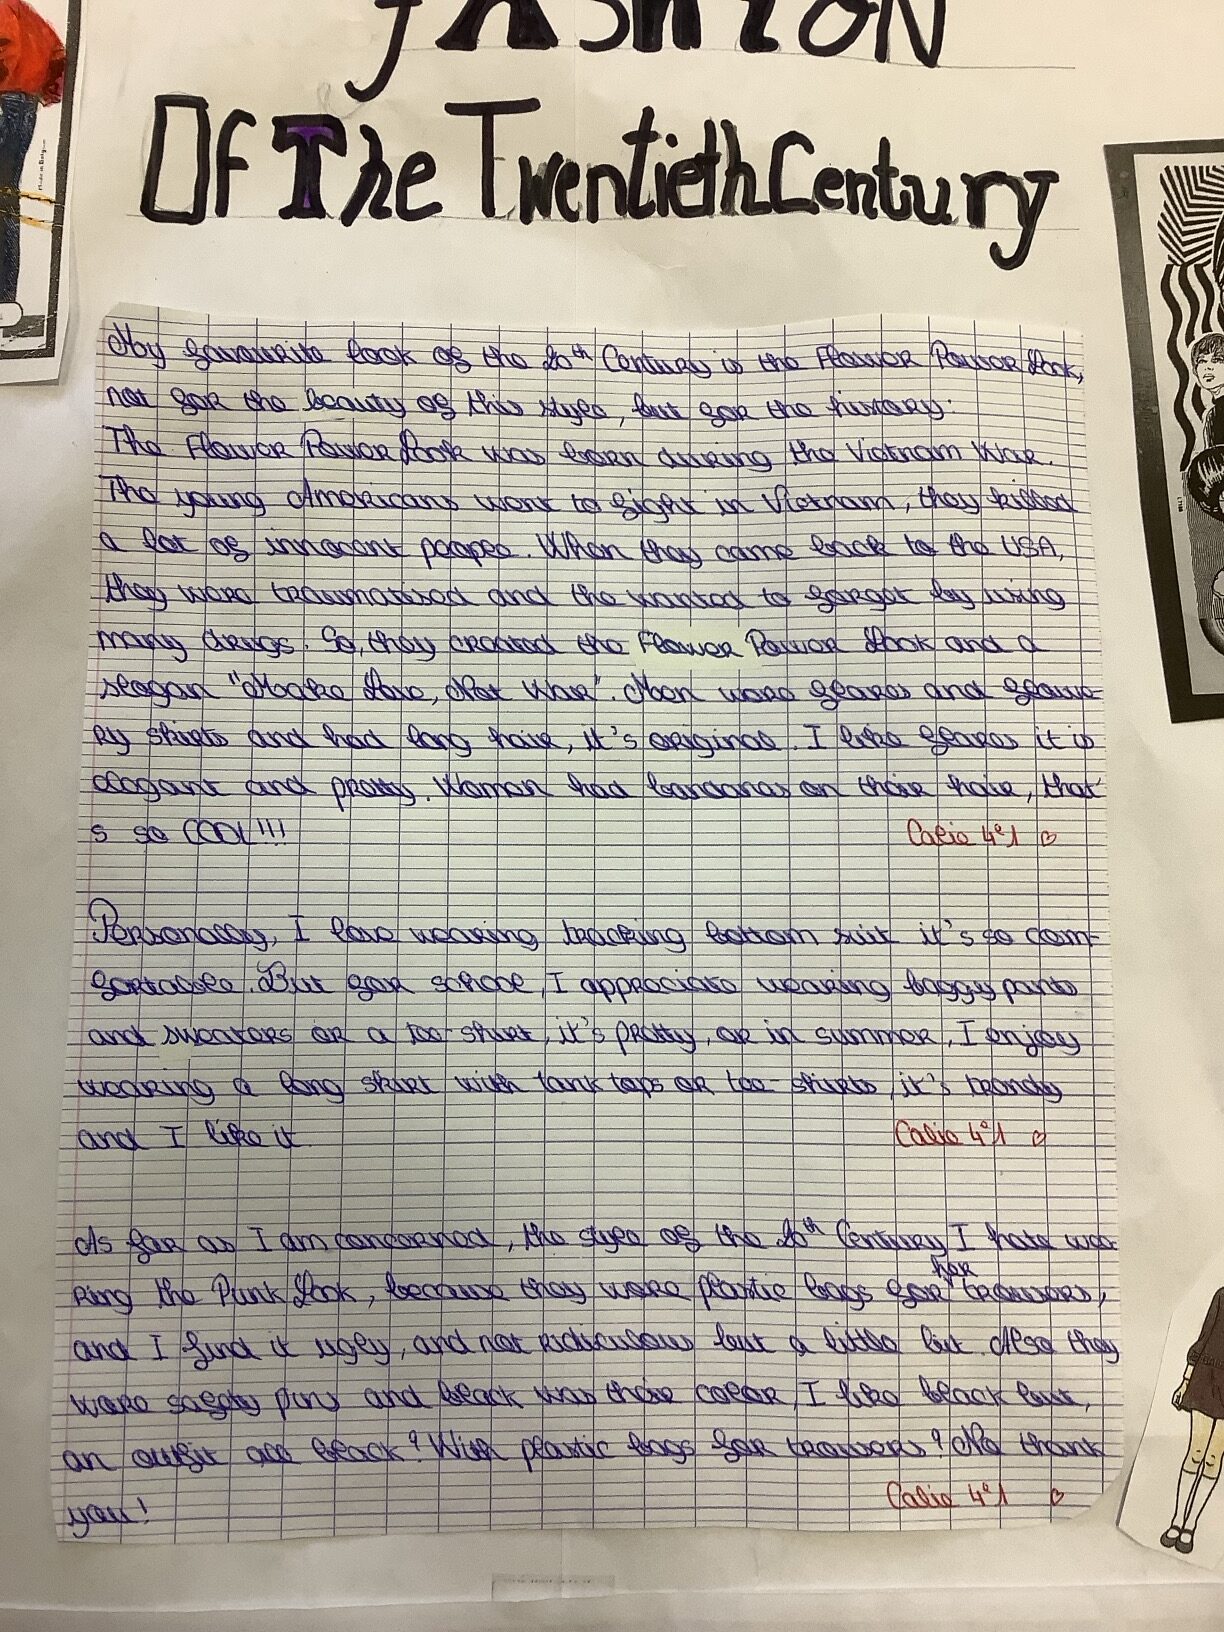 FASHION
Of The Twentieth Century
My favourite look of the 20th Century is the Flower Power Look,
not for the beauty of this style, but for the history:
The Flower Power Look was born during the Vietnam War.
The young Americans went to fight in Vietnam, they killed
a lot of innocent people. When they came back to the USA,
they were traumatised and the wanted to forget by using
many drugs. So, they created the Flower Power Look and a
slogan "Make Love, Not War". Men wore flares and flowe-
ry shirts and had long hair, it's original. I like flares it is
elegant and pretty. Women had bananas on their hair, that'
s so COOL!!!
Calie 4°1 ♡
Personally, I love wearing tracking bottom suit it's so com-
fortable. But for school, I appreciate wearing baggy pants
and sweaters or a tee-shirt, it's pretty, or in summer, I enjoy
wearing a long skirt with tank tops or tee-shirts, it's trendy
and I like it
Calie 4°1 ♡
As far as I am concerned, the style of the 20th Century I hate wea-
ring the Punk Look, because they wore plastic bags for her trowers,
and I find it ugly, and not ridiculous but a little bit. Also they
wore safety pins and black was their color, I like black but,
an outfit all black? With plastic bags for trowers? No thank
you!
Calie 4°1 ♡